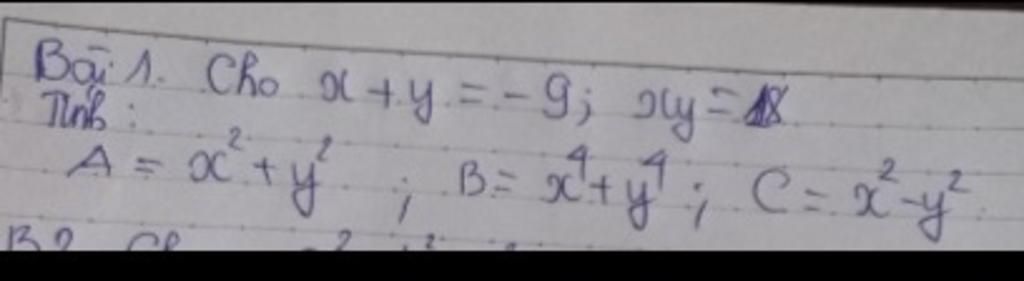 Bài 1. Cho x + y = - 9; xy = 18
Tính :
A = x² + y² ; B = x⁴ + y⁴ ; C = x² - y²